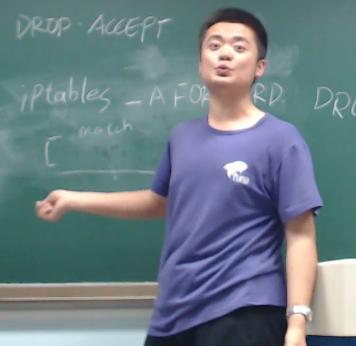 DROP . ACCEPT
iptables - A FORWARD DRO
match
[